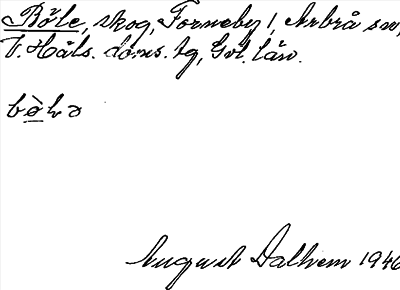 Böle, skog, Forneby, Arbrå sn,
V. Häls. doms. tg, Gvl. län.
bòlə
August Dalhem 1946